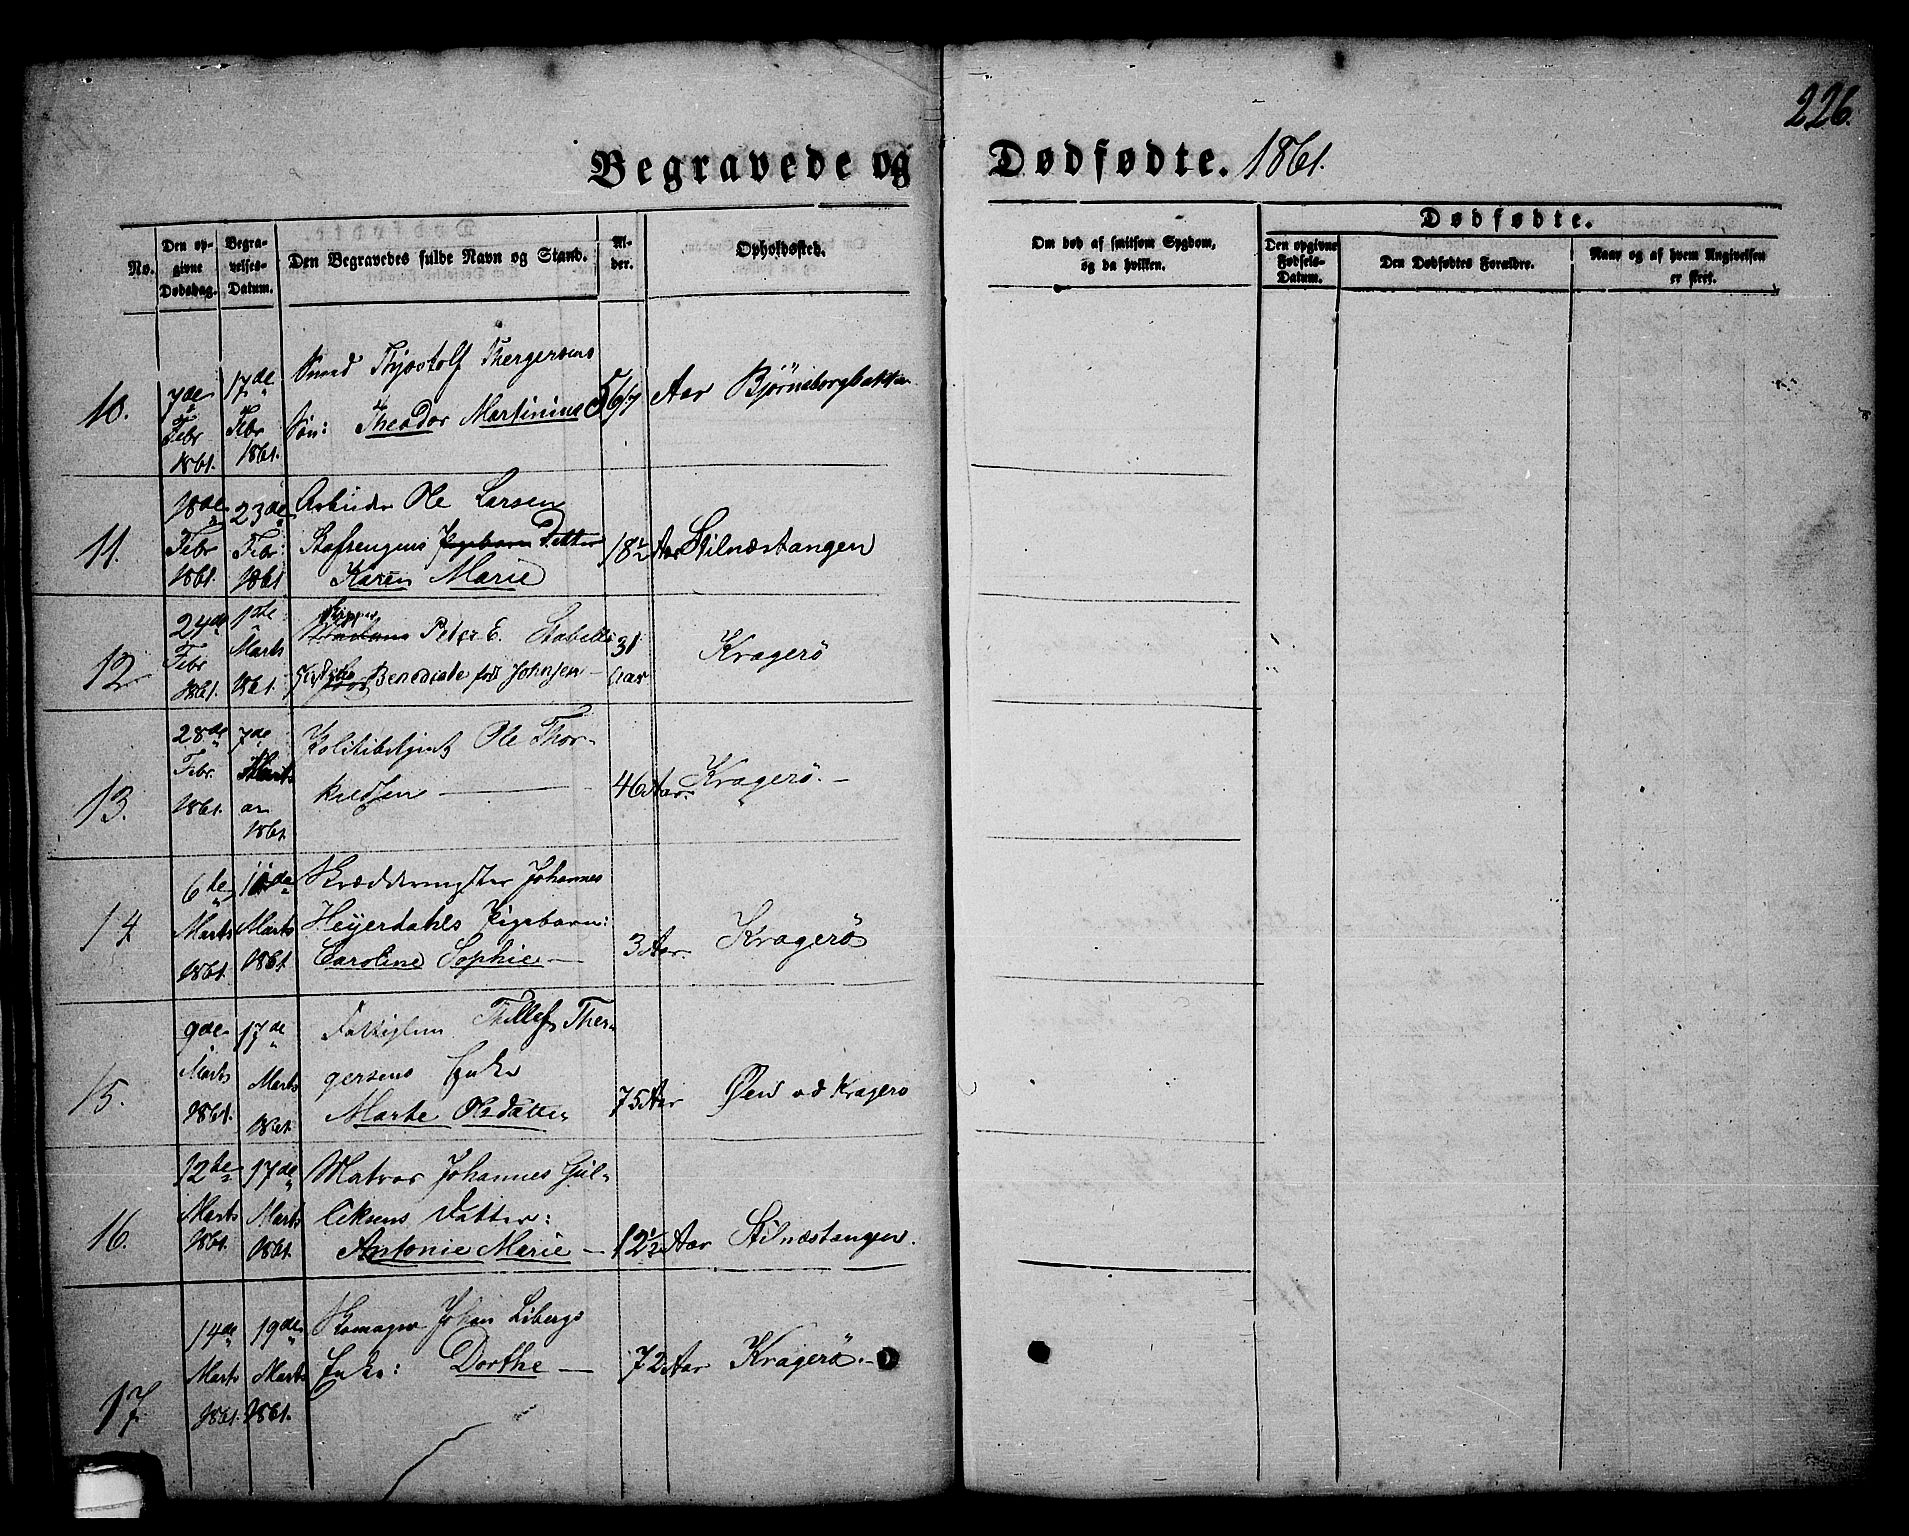 226.
Begravede og Dødfødte. 1861.
No.
Den opgivne Dødsdag.
Begravelses-Datum.
Den Begravedes fulde Navn og Stand.
Alder.
Opholdssted.
Om død af smitsom Sygdom,
og da hvilken.
Dødfødte.
Den opgivne
Fødsels-
Datum.
Den Dødfødtes Forældre.
Naar og af hvem Angivelsen
er skeet.
10. 7de Febr 1861. 17de Febr 1861.
Smed Thjostolf Thergersens
Søn: Theodor Martinius
Aar Bjørnsborgbakken
11. 18de Febr 1861. 23de Febr: 1861
Arbeider Ole Larsen
Datter
Karen Marie
18½ Aar Stilnæstangen
12. 24de Febr 1861. 1ste Marts 1861.
Peter E. Stabells
Benedicte fød Johnsen
31 Aar Kragerö
13. 28de Febr. 1861. 7de Marts 1861
Politibetjent Ole Thor-
kildsen
46 Aar. Kragerö.
14 6te Marts 1861. 11de Marts 1861.
Skræddermester Johannes
Heyerdahls Pigebarn:
Caroline Sophie
3 Aar. Kragerö
15. 9de Marts 1861. 17de Marts 1861.
Fattiglem Thellef Ther-
gersens Enke
Marte Olsdatter
75 Aar Øen ved Kragerö
16. 12te Marts 1861. 17de Marts 1861.
Matros Johannes Gul-
leksens Datter:
Antonie Marie
12½ Aar Stilnæstangen.
17 14de Marts 1861. 19de Marts 1861.
Skomager Johan Libergs
Enke: Dorthe
72 Aar Kragerö.